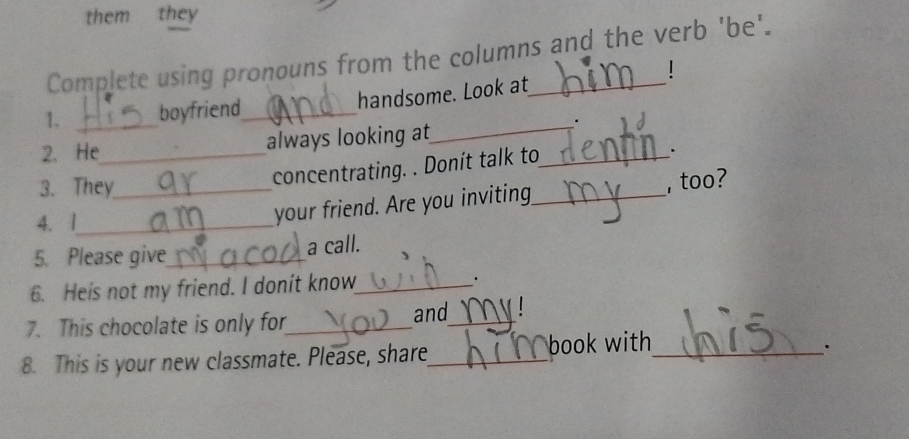 them they
Complete using pronouns from the columns and the verb 'be'.
1. His boyfriend and handsome. Look at him!
2. He always looking at .
3. They ar concentrating. . Donít talk to .
4. I am your friend. Are you inviting my, too?
5. Please give a call.
6. Heís not my friend. I donít know .
7. This chocolate is only for you and my!
8. This is your new classmate. Please, share him book with his.